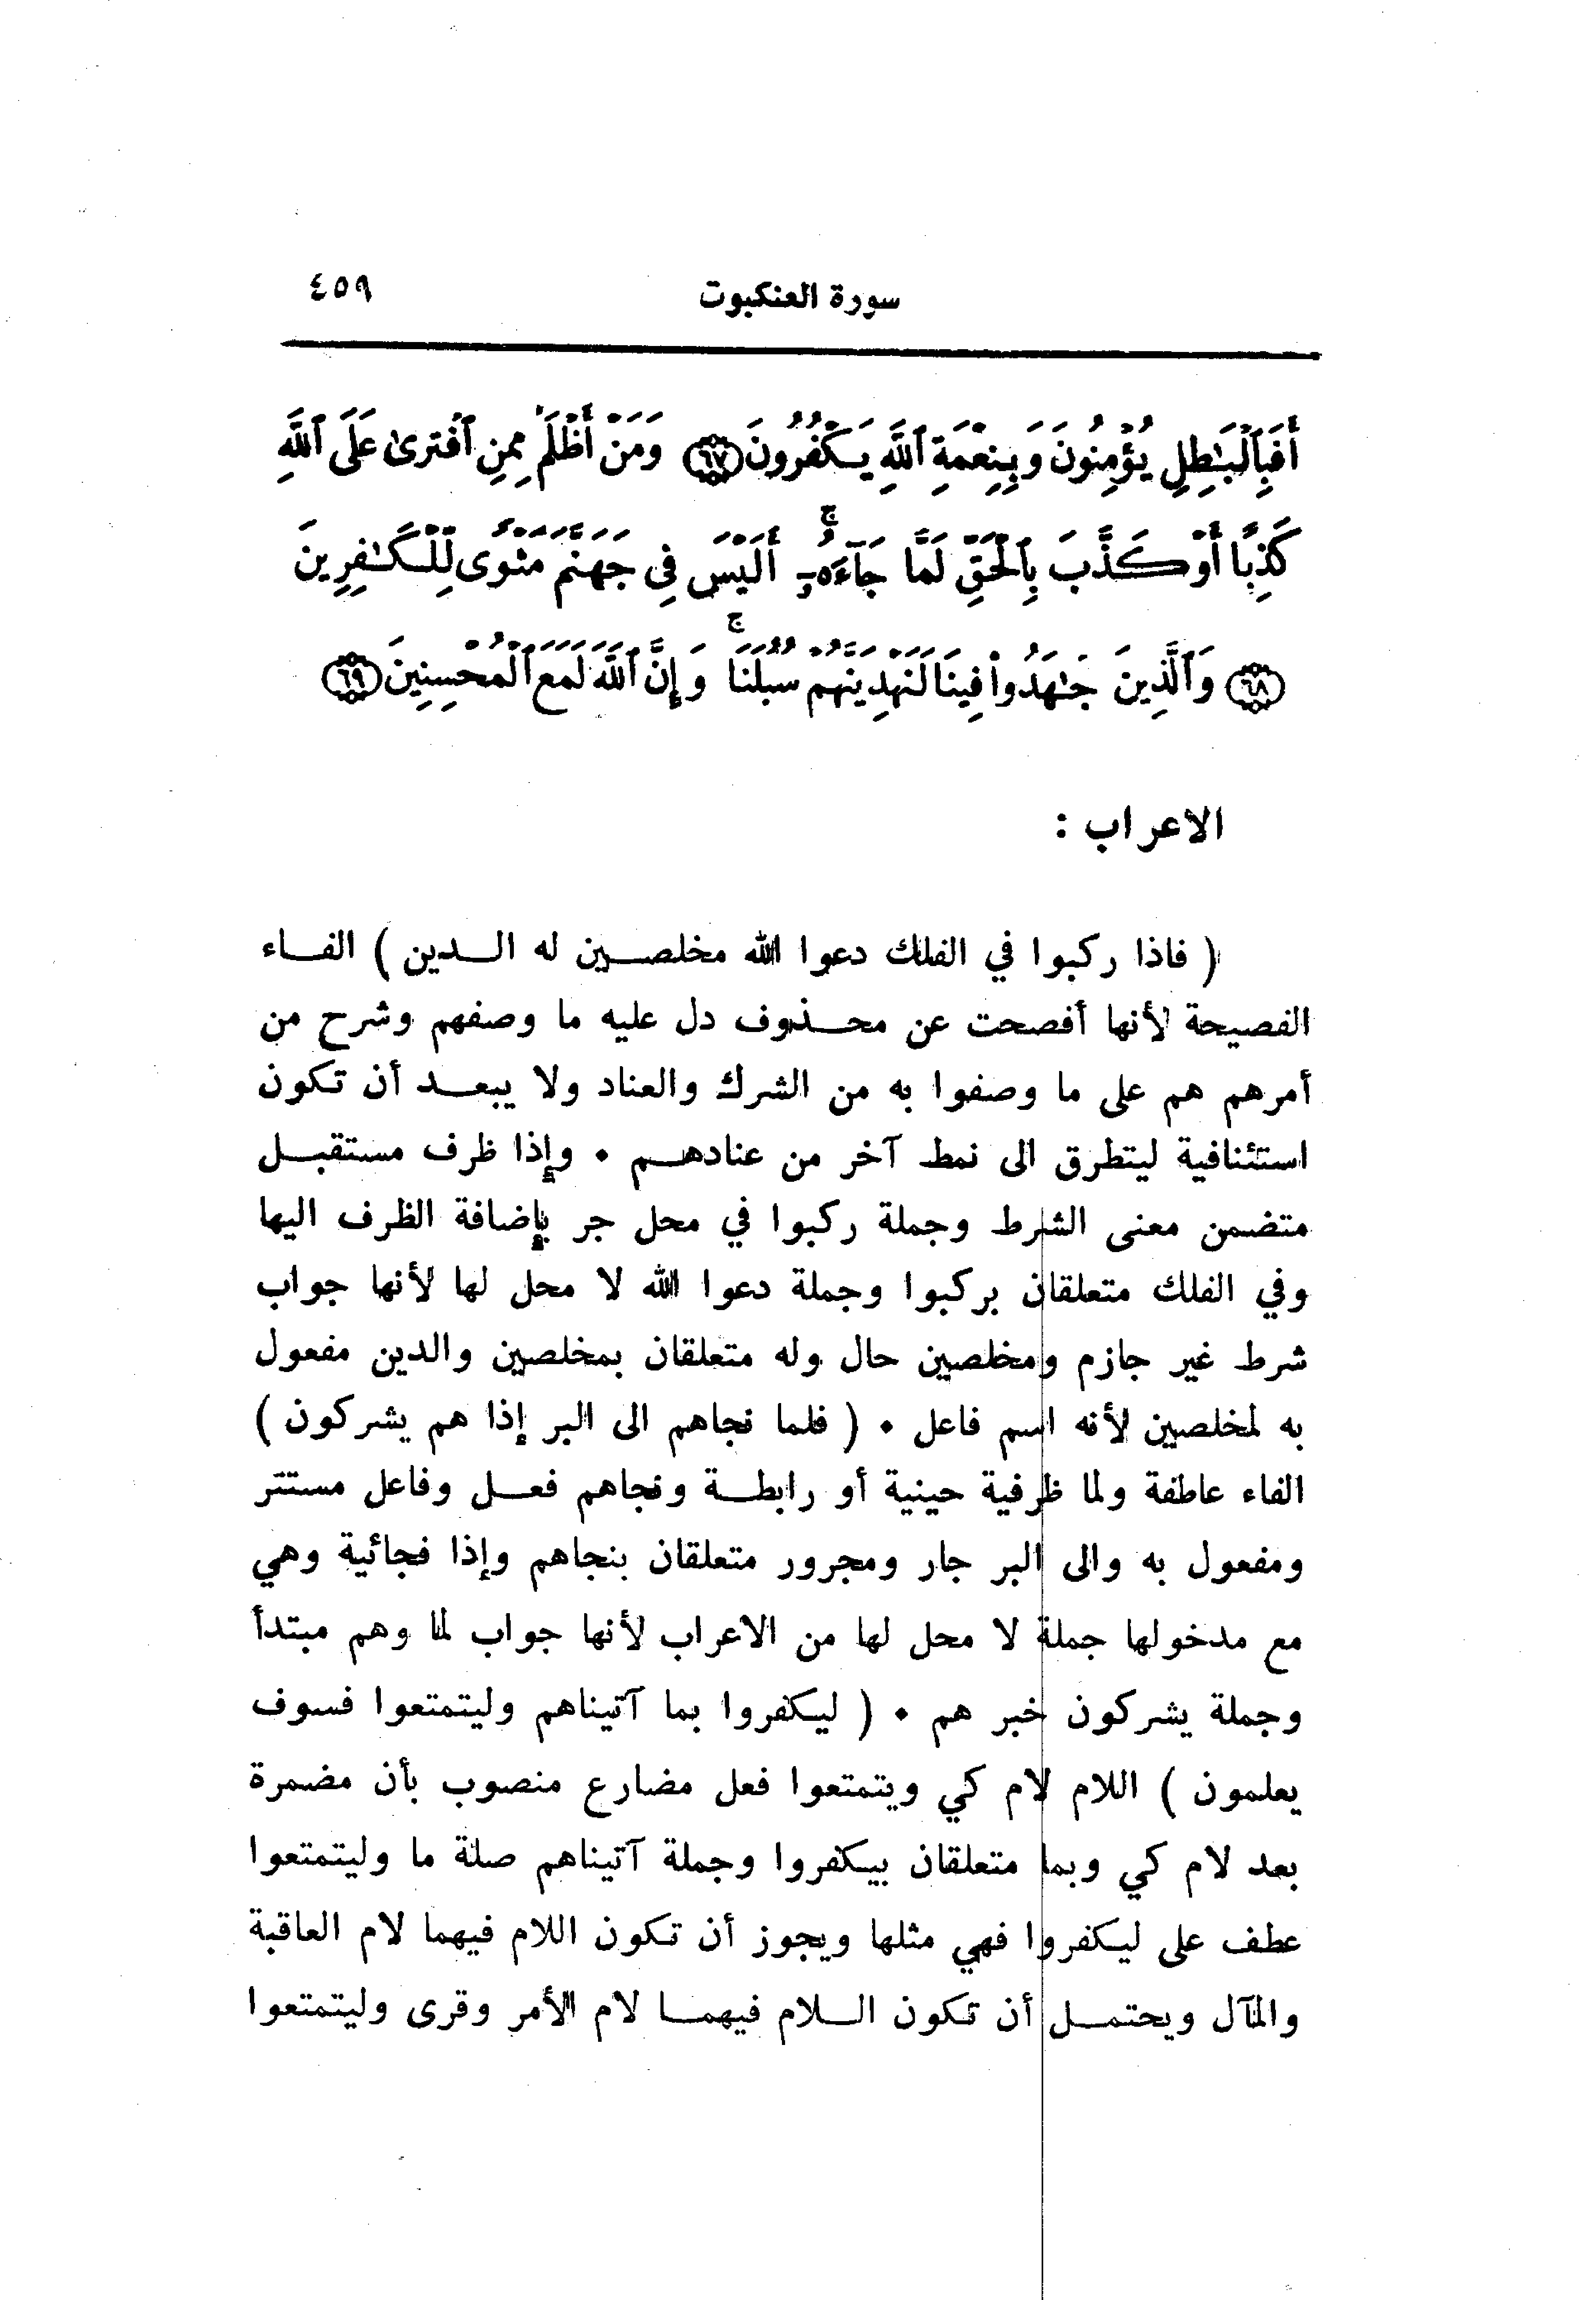 سورة العنكبوت ٤٥٩
أَفَبِٱلْبَٰطِلِ يُؤْمِنُونَ وَبِنِعْمَةِ ٱللَّهِ يَكْفُرُونَ ﴿٦٧﴾ وَمَنْ أَظْلَمُ مِمَّنِ ٱفْتَرَىٰ عَلَى ٱللَّهِ
كَذِبًا أَوْ كَذَّبَ بِٱلْحَقِّ لَمَّا جَآءَهُۥٓ ۚ أَلَيْسَ فِى جَهَنَّمَ مَثْوًى لِّلْكَٰفِرِينَ
﴿٦٨﴾ وَٱلَّذِينَ جَٰهَدُوا۟ فِينَا لَنَهْدِيَنَّهُمْ سُبُلَنَا ۚ وَإِنَّ ٱللَّهَ لَمَعَ ٱلْمُحْسِنِينَ ﴿٦٩﴾
الاعراب :
( فاذا ركبوا في الفلك دعوا الله مخلصين له الدين ) الفاء
الفصيحة لأنها أفصحت عن محذوف دل عليه ما وصفهم وشرح من
أمرهم هم على ما وصفوا به من الشرك والعناد ولا يبعد أن تكون
استئنافية ليتطرق الى نمط آخر من عنادهم ٠ وإذا ظرف مستقبل
متضمن معنى الشرط وجملة ركبوا في محل جر بإضافة الظرف اليها
وفي الفلك متعلقان بركبوا وجملة دعوا الله لا محل لها لأنها جواب
شرط غير جازم ومخلصين حال وله متعلقان بمخلصين والدين مفعول
به لمخلصين لأنه اسم فاعل ٠ ( فلما نجاهم الى البر إذا هم يشركون )
الفاء عاطفة ولما ظرفية حينية أو رابطة ونجاهم فعل وفاعل مستتر
ومفعول به والى البر جار ومجرور متعلقان بنجاهم وإذا فجائية وهي
مع مدخولها جملة لا محل لها من الاعراب لأنها جواب لما وهم مبتدأ
وجملة يشركون خبر هم ٠ ( ليكفروا بما آتيناهم وليتمتعوا فسوف
يعلمون ) اللام لام كي ويتمتعوا فعل مضارع منصوب بأن مضمرة
بعد لام كي وبما متعلقان بيكفروا وجملة آتيناهم صلة ما وليتمتعوا
عطف على ليكفروا فهي مثلها ويجوز أن تكون اللام فيهما لام العاقبة
والمآل ويحتمل أن تكون اللام فيهما لام الأمر وقرى وليتمتعوا